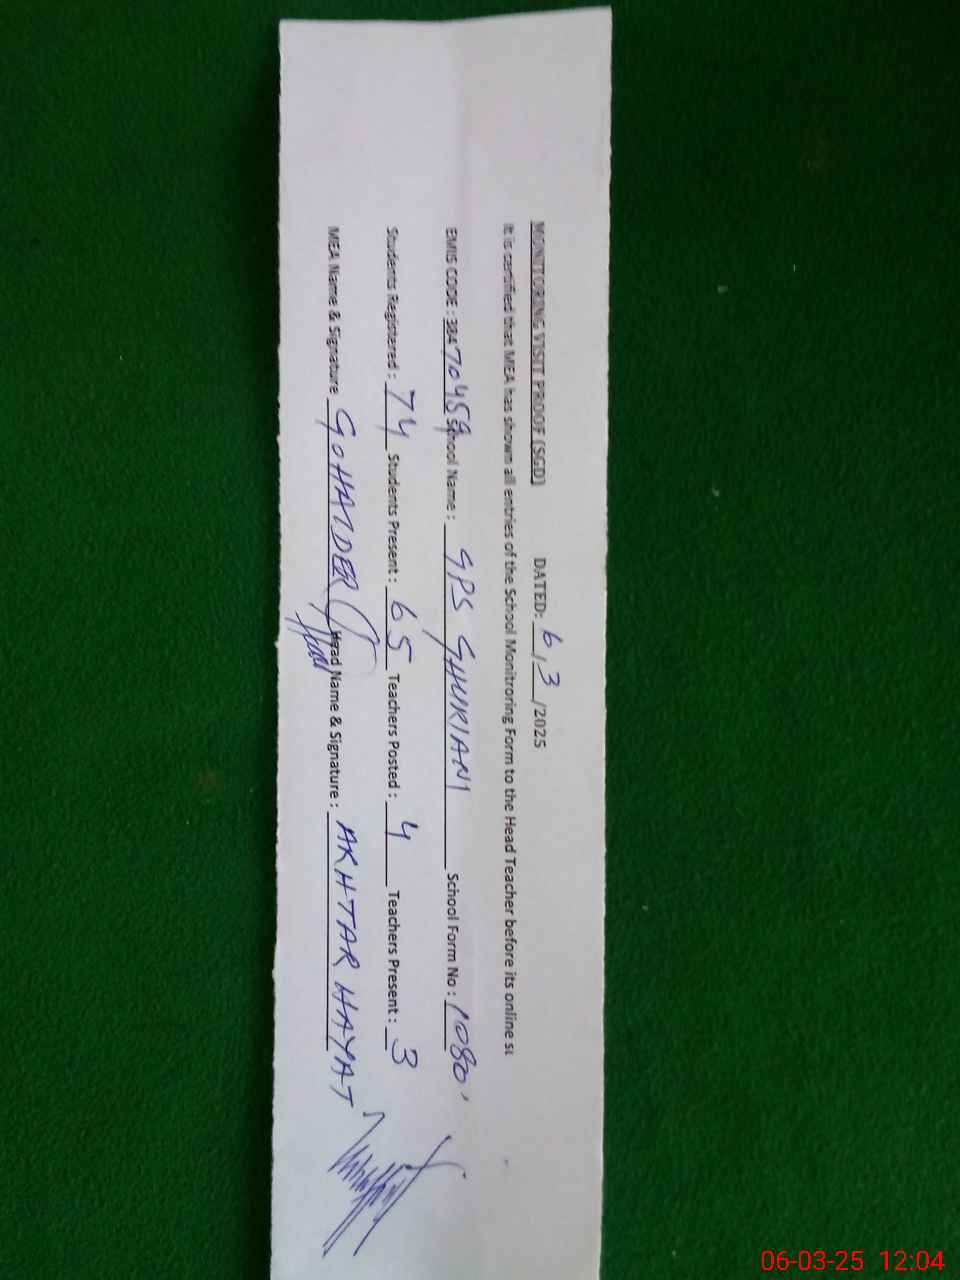 MONITORING VISIT PROOF (SGD) DATED: 6/3/2025
It is certified that MEA has shown all entries of the School Monitroring Form to the Head Teacher before its online
EMIS CODE : 38470459 School Name : GPS GHURIANI School Form No : 1080
Students Registered : 74 Students Present : 65 Teachers Posted : 4 Teachers Present : 3
MEA Name & Signature GOHAIDER Head Name & Signature : AKHTAR HAYAT
06-03-25 12:04